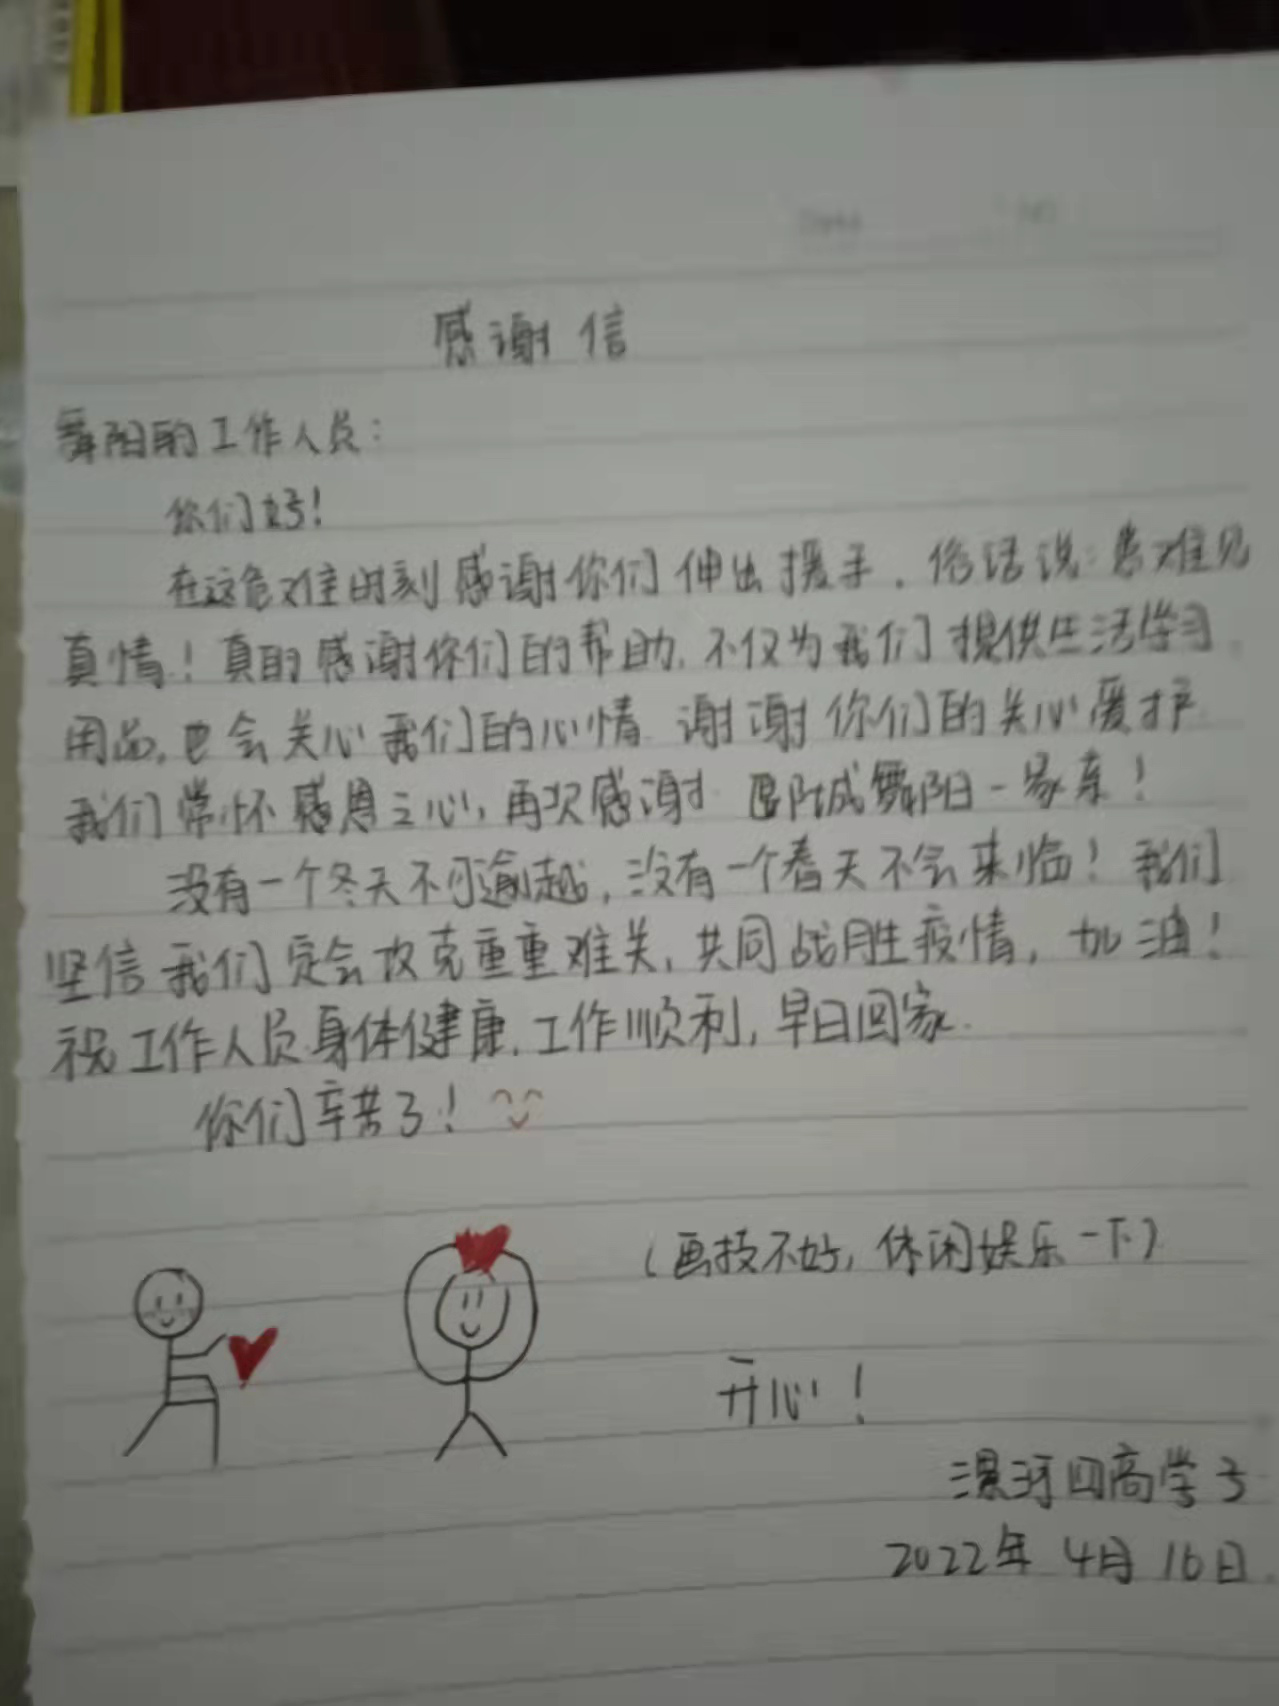 感谢信
舞阳的工作人员：
你们好！
在这危难时刻感谢你们伸出援手，俗话说：患难见
真情！真的感谢你们的帮助，不仅为我们提供生活学习
用品，也会关心我们的心情，谢谢你们的关心爱护
我们常怀感恩之心，再次感谢 郾城舞阳一家亲！
没有一个冬天不可逾越，没有一个春天不会来临！我们
坚信我们定会攻克重重难关，共同战胜疫情，加油！
祝工作人员身体健康，工作顺利，早日回家.
你们辛苦了！
（画技不好，休闲娱乐一下）
开心！
漯河四高学子
2022年4月16日